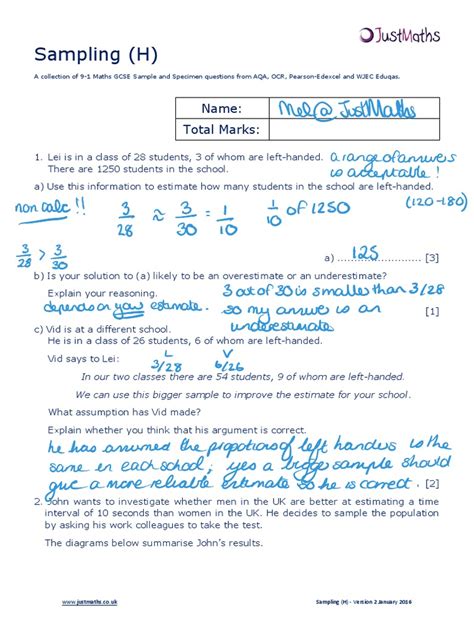 JustMaths
Sampling (H)
A collection of 9-1 Maths GCSE Sample and Specimen questions from AQA, OCR, Pearson-Edexcel and WJEC Eduqas.
Name: Mel @ JustMaths
Total Marks:
1. Lei is in a class of 28 students, 3 of whom are left-handed. a range of answers
There are 1250 students in the school. is acceptable!
a) Use this information to estimate how many students in the school are left-handed.
non calc!! 3/28 ≈ 3/30 = 1/10 1/10 of 1250 (120-180)
3/28 > 3/30
a) 125 [3]
b) Is your solution to (a) likely to be an overestimate or an underestimate?
Explain your reasoning. 3 out of 30 is smaller than 3/28
depends on your estimate. so my answer is an [1]
underestimate
c) Vid is at a different school.
He is in a class of 26 students, 6 of whom are left-handed.
L V
Vid says to Lei: 3/28 6/26
In our two classes there are 54 students, 9 of whom are left-handed.
We can use this bigger sample to improve the estimate for your school.
What assumption has Vid made?
Explain whether you think that his argument is correct.
he has assumed the proportions of left handers is the
same in each school; yes a bigger sample should
give a more reliable estimate so he is correct. [2]
2. John wants to investigate whether men in the UK are better at estimating a time
interval of 10 seconds than women in the UK. He decides to sample the population
by asking his work colleagues to take the test.
The diagrams below summarise John's results.
www.justmaths.co.uk Sampling (H) - Version 2 January 2016